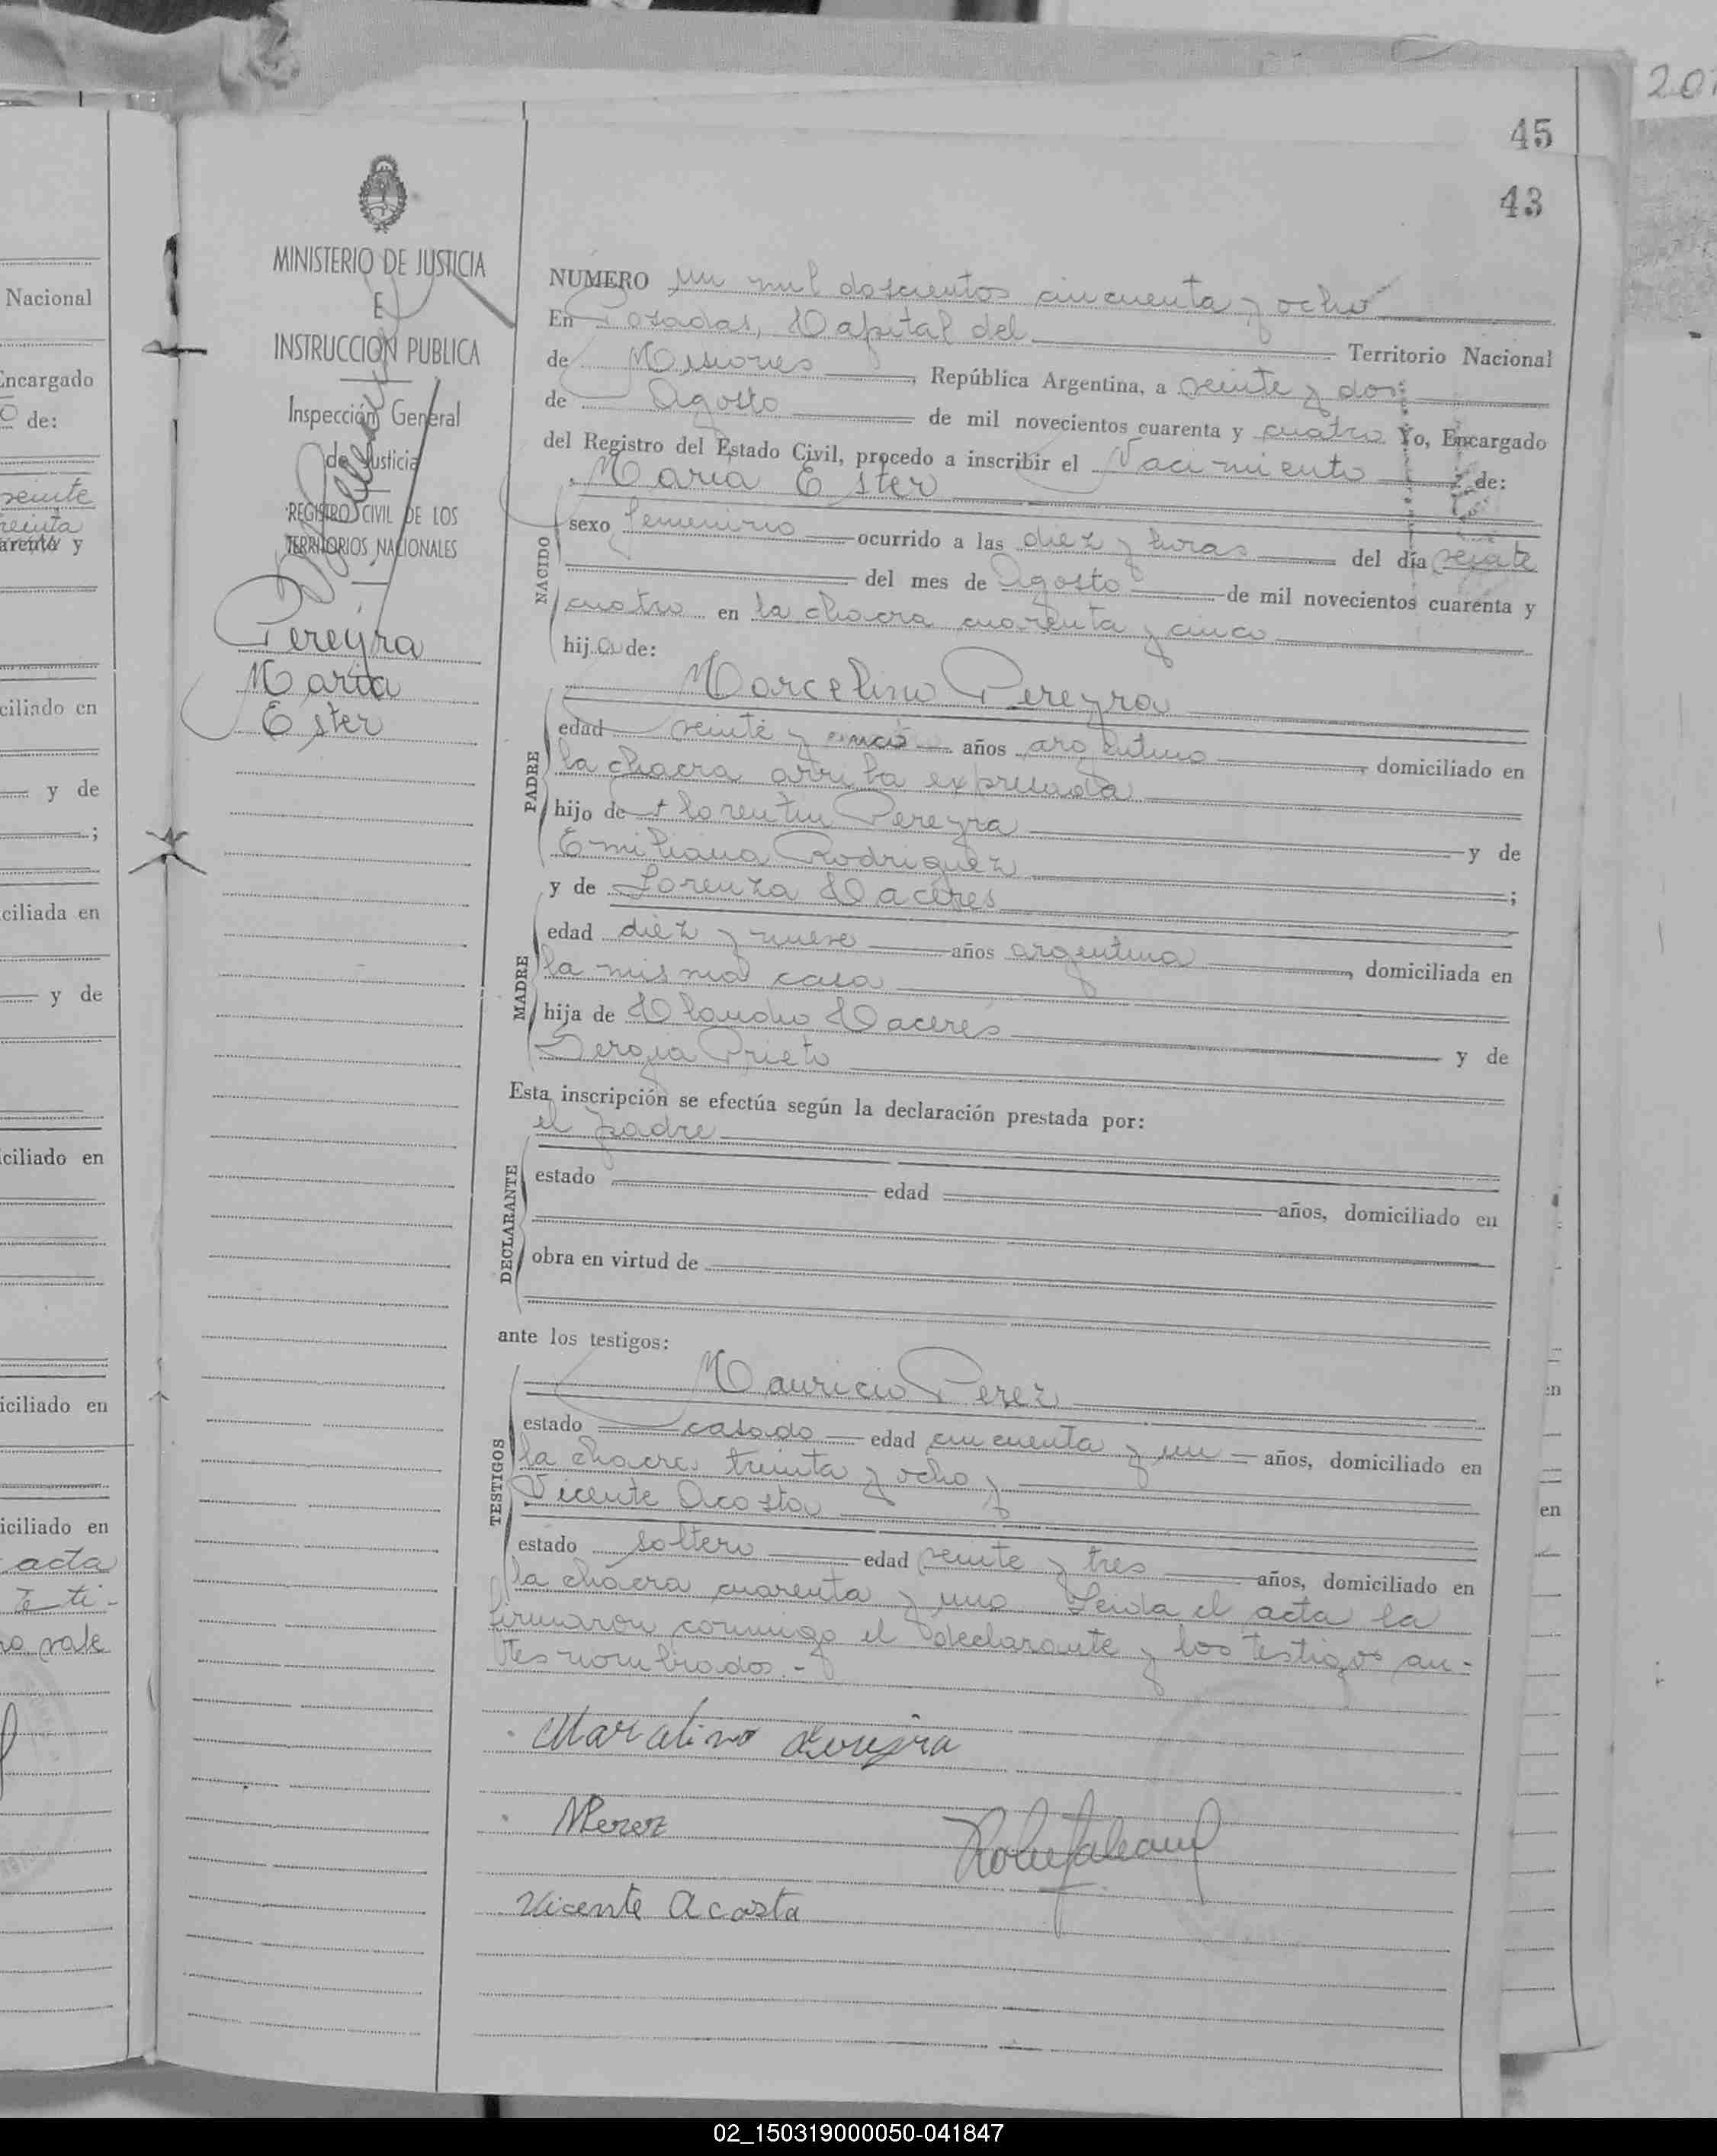 201
45
43
MINISTERIO DE JUSTICIA
E
INSTRUCCION PUBLICA
Inspección General
de Justicia
REGISTRO CIVIL DE LOS
TERRITORIOS NACIONALES
Pereyra
Maria
Ester
NUMERO un mil doscientos cincuenta y ocho
En Posadas, Capital del Territorio Nacional
de Misiones, República Argentina, a veinte y dos
de Agosto de mil novecientos cuarenta y cuatro Yo, Encargado
del Registro del Estado Civil, procedo a inscribir el Nacimiento de:
Maria Ester
NACIDO
sexo femenino ocurrido a las diez y horas del día veinte
del mes de Agosto de mil novecientos cuarenta y
cuatro en la chacra cuarenta y cinco
hij a de:
Marcelino Pereyra
PADRE
edad veinte y cinco años argentino, domiciliado en
la chacra arriba expresada
hijo de Florentin Pereyra y de
Emiliana Rodriguez;
y de Lorenza Caceres
MADRE
edad diez y nueve años argentina, domiciliada en
la misma casa
hija de Claudio Caceres y de
Prieto
Esta inscripción se efectúa según la declaración prestada por:
el padre
DECLARANTE
estado edad años, domiciliado en
obra en virtud de
ante los testigos:
Mauricio Perez
TESTIGOS
estado casado edad cincuenta y un años, domiciliado en
la chacra treinta y ocho y
Vicente Acosta
estado soltero edad veinte y tres años, domiciliado en
la chacra cuarenta y uno Leida el acta la
firmaron conmigo el declarante y los testigos an-
tes nombrados.-
Marcelino Pereyra
MPerez
Vicente Acosta
Nacional
Encargado
de:
veinte
y
ciliado en
y de
;
ciliada en
y de
ciliado en
iciliado en
iciliado en
acta
ti-
vale
en
en
02_150319000050-041847